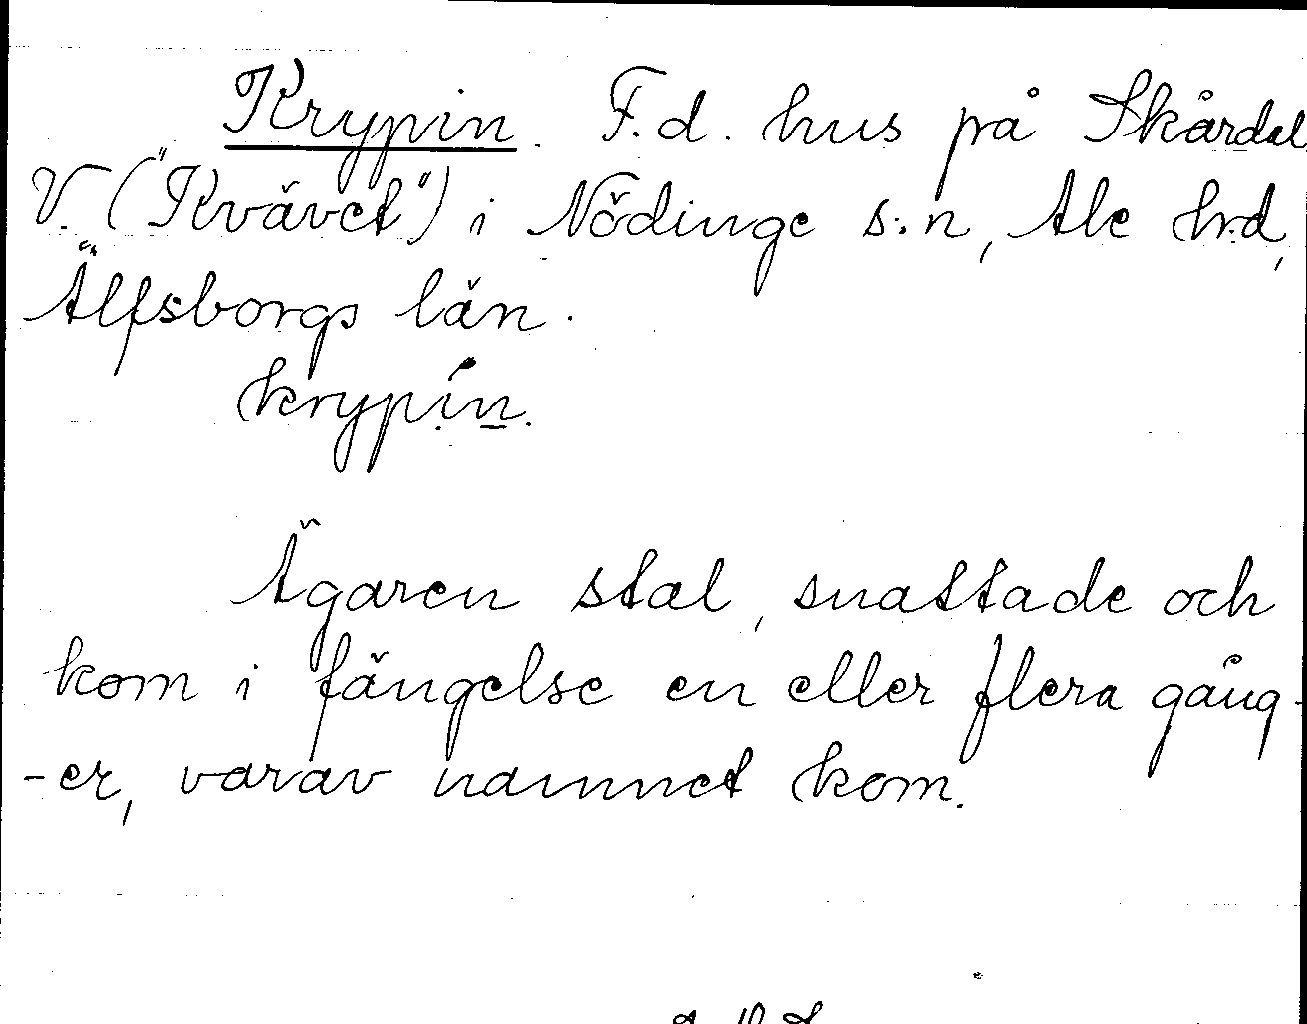 Krypin. F.d. hus på Skårdal
V. ("Kvävet") i Nödinge s:n, Ale h:d,
Älfsborgs län.
krypín.
Ägaren stal, snattade och
kom i fängelse en eller flera gång-
-er, varav namnet kom.